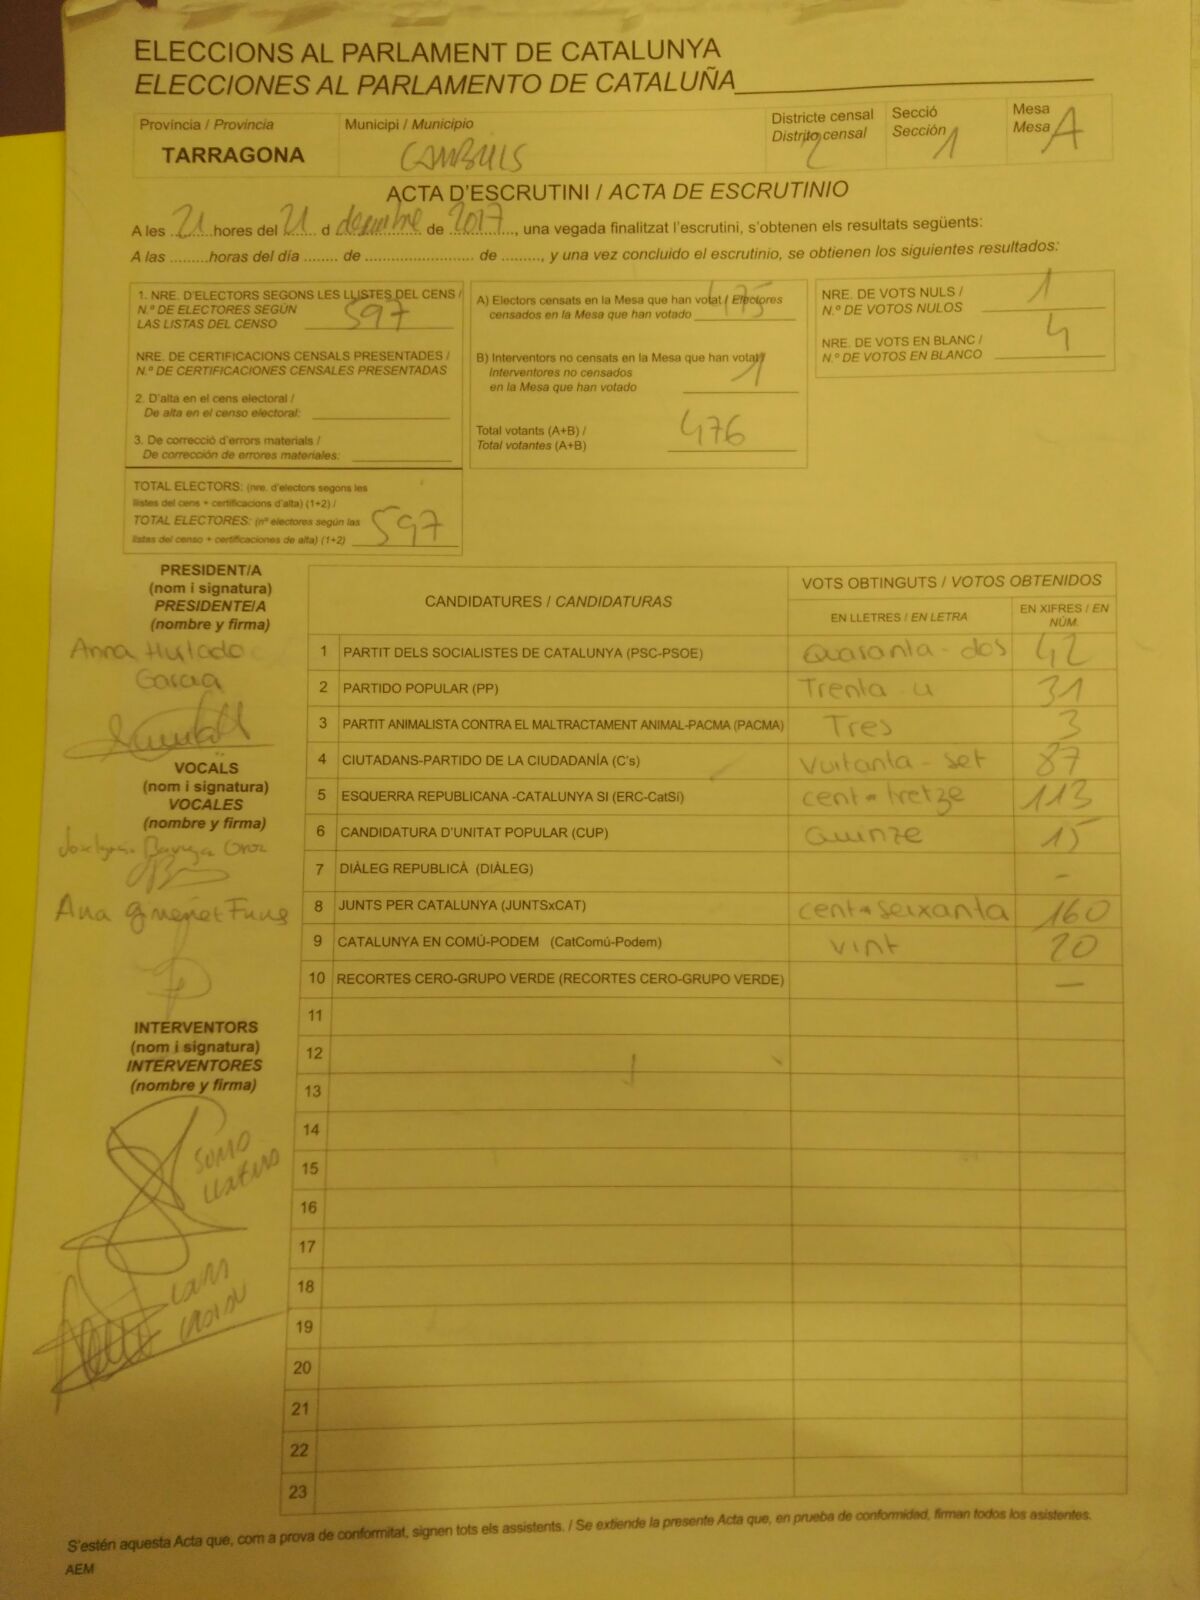 ELECCIONS AL PARLAMENT DE CATALUNYA
ELECCIONES AL PARLAMENTO DE CATALUÑA
Província / Provincia
TARRAGONA
Municipi / Municipio
CAMBRILS
Districte censal
Distrito censal
2
Secció
Sección
1
Mesa
Mesa
A
ACTA D'ESCRUTINI / ACTA DE ESCRUTINIO
A les 21 hores del 21 d desembre de 2017, una vegada finalitzat l'escrutini, s'obtenen els resultats següents:
A las .........horas del día ........ de ......................... de ........., y una vez concluido el escrutinio, se obtienen los siguientes resultados:
1. NRE. D'ELECTORS SEGONS LES LLISTES DEL CENS /
N.º DE ELECTORES SEGÚN
LAS LISTAS DEL CENSO 597
NRE. DE CERTIFICACIONS CENSALS PRESENTADES /
N.º DE CERTIFICACIONES CENSALES PRESENTADAS
2. D'alta en el cens electoral /
De alta en el censo electoral:
3. De correcció d'errors materials /
De corrección de errores materiales:
TOTAL ELECTORS: (nre. d'electors segons les
llistes del cens + certificacions d'alta) (1+2) /
TOTAL ELECTORES: (nº electores según las
listas del censo + certificaciones de alta) (1+2) 597
A) Electors censats en la Mesa que han votat / Electores
censados en la Mesa que han votado 475
B) Interventors no censats en la Mesa que han votat/
Interventores no censados
en la Mesa que han votado 1
Total votants (A+B) /
Total votantes (A+B) 476
NRE. DE VOTS NULS /
N.º DE VOTOS NULOS 1
NRE. DE VOTS EN BLANC /
N.º DE VOTOS EN BLANCO 4
PRESIDENT/A
(nom i signatura)
PRESIDENTE/A
(nombre y firma)
Anna Hurtado
Garcia
VOCALS
(nom i signatura)
VOCALES
(nombre y firma)
Ana Gimenet Funs
INTERVENTORS
(nom i signatura)
INTERVENTORES
(nombre y firma)
CANDIDATURES / CANDIDATURAS
VOTS OBTINGUTS / VOTOS OBTENIDOS
EN LLETRES / EN LETRA
EN XIFRES / EN NÚM.
1 PARTIT DELS SOCIALISTES DE CATALUNYA (PSC-PSOE) Quaranta-dos 42
2 PARTIDO POPULAR (PP) Trenta u 31
3 PARTIT ANIMALISTA CONTRA EL MALTRACTAMENT ANIMAL-PACMA (PACMA) Tres 3
4 CIUTADANS-PARTIDO DE LA CIUDADANÍA (C's) Vuitanta-set 87
5 ESQUERRA REPUBLICANA -CATALUNYA SI (ERC-CatSí) cent-tretze 113
6 CANDIDATURA D'UNITAT POPULAR (CUP) Quinze 15
7 DIÀLEG REPUBLICÀ (DIÀLEG) -
8 JUNTS PER CATALUNYA (JUNTSxCAT) cent-seixanta 160
9 CATALUNYA EN COMÚ-PODEM (CatComú-Podem) vint 20
10 RECORTES CERO-GRUPO VERDE (RECORTES CERO-GRUPO VERDE) -
11
12
13
14
15
16
17
18
19
20
21
22
23
S'estén aquesta Acta que, com a prova de conformitat, signen tots els assistents. / Se extiende la presente Acta que, en prueba de conformidad, firman todos los asistentes.
AEM